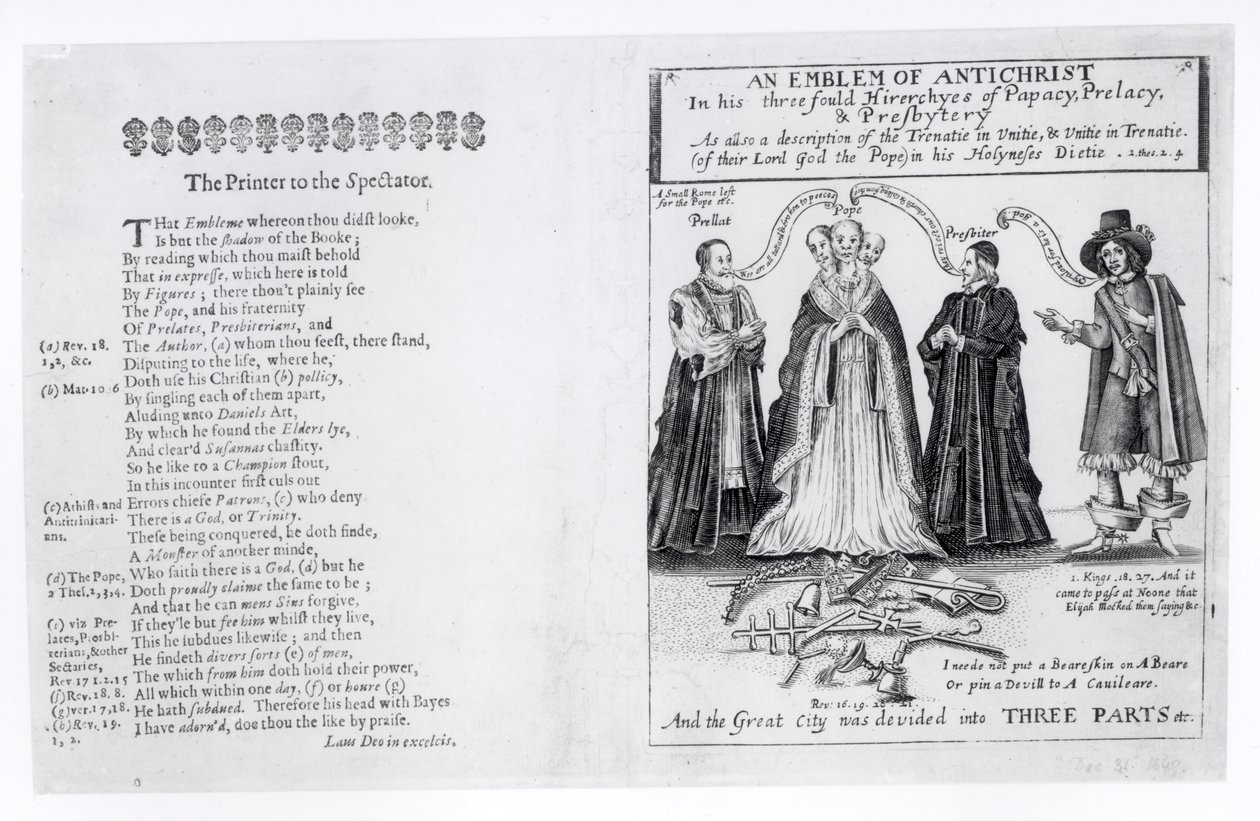 The Printer to the Spectator.
THat Embleme whereon thou didſt looke,
Is but the ſhadow of the Booke;
By reading which thou maiſt behold
That in expreſſe, which here is told
By Figures; there thou't plainly ſee
The Pope, and his fraternity
Of Prelates, Presbiterians, and
The Author, (a) whom thou ſeeſt, there ſtand,
Diſputing to the life, where he,
Doth uſe his Chriſtian (b) pollicy,
By ſingling each of them apart,
Aluding unto Daniels Art,
By which he found the Elders lye,
And clear'd Suſannas chaſtity.
So he like to a Champion ſtout,
In this incounter firſt culs out
Errors chiefe Patrons, (c) who deny
There is a God, or Trinity.
Theſe being conquered, he doth finde,
A Monſter of another minde,
Who ſaith there is a God, (d) but he
Doth proudly claime the ſame to be;
And that he can mens Sins forgive,
If they'le but fee him whilſt they live,
This he ſubdues likewiſe; and then
He findeth divers ſorts (e) of men,
The which from him doth hold their power,
All which within one day, (f) or houre (g)
He hath ſubdued. Therefore his head with Bayes
I have adorn'd, doe thou the like by praiſe.
Laus Deo in excelcis.
(a) Rev. 18.
1,2, &c.
(b) Mat. 10.16
(c) Athiſts and
Antitrinitari-
ans.
(d) The Pope,
2 Theſ. 2,3,4.
(e) viz Pre-
lates, Presbi-
terians, & other
Sectaries,
Rev 17 1.2.15
(f) Rev. 18. 8.
(g) ver. 17,18.
(h) Rev. 19.
1, 2.
AN EMBLEM OF ANTICHRIST
In his three fould Hirerchyes of Papacy, Prelacy,
& Preſbytery
As allso a description of the Trenatie in Unitie, & Unitie in Trenatie.
(of their Lord God the Pope) in his Holyneſes Dietie. 2. thes. 2. 4.
A Small Rome left
for the Pope etc.
Prellat
Wee are all battard & broken to peeces
Pope
Presbiter
Cry aloud for he is a god.
1. Kings .18. 27. And it
came to paſs at Noone that
Elijah Mocked them ſaying &c
I neede not put a Beareſkin on A Beare
Or pin a Devill to A Cauileare.
Rev: 16. 19. 20. 21.
And the Great City was devided into THREE PARTS etc.
Dec 31 1649.